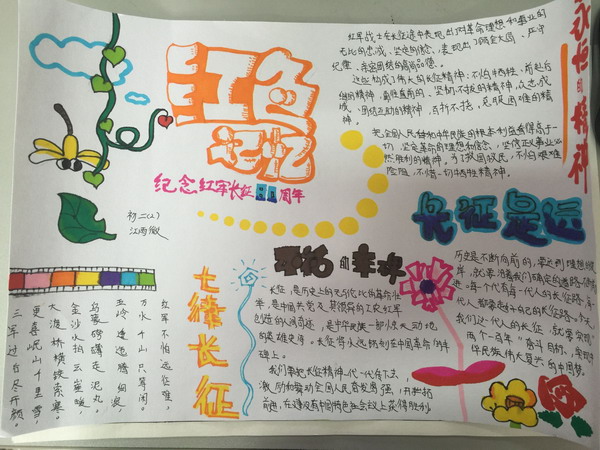 红色
记忆
纪念红军长征80周年
初二(2)
江雨微
永恒的精神
红军战士在长征途中表现出对革命理想和事业的
无比的忠诚、坚定的信念，表现出了顾全大局、严守
纪律、亲密团结的高尚品德。
这些构成了伟大的长征精神：不怕牺牲，前赴后
继的精神，勇往直前的、坚韧不拔的精神，众志成
城、团结互助的精神，百折不挠，克服困难的精
神。
把全国人民和中华民族的根本利益看得高于一
切，坚定革命的理想和信念，坚信正义事业必
然胜利的精神，为了救国救民，不怕艰难
险阻，不惜一切牺牲精神。
长征是
七律长征
红军不怕远征难，
万水千山只等闲。
五岭逶迤腾细浪，
乌蒙磅礴走泥丸。
金沙水拍云崖暖，
大渡桥横铁索寒。
更喜岷山千里雪，
三军过后尽开颜。
长征，是历史上的无与伦比的革命壮
举，是中国共产党及其领导的工农红军
创造的人间奇迹，是中华民族一部惊天动地
的英雄史诗。长征将永远铭刻在中国革命的丰
碑上。
我们要把长征精神一代一代传下去，
激励和鼓动全国人民奋发图强，开拓
前进，在建设有中国特色社会主义上获得胜利
历史是不断向前的，要达到理想的彼
岸，就要沿着我们确定的道路不断前
进。每一代人有一代人的长征路，每一
代人都要走好自己的长征路。今天，
我们这一代人的长征，就是要实现"
两个一百年"奋斗目标，实现中
华民族伟大复兴的中国梦。